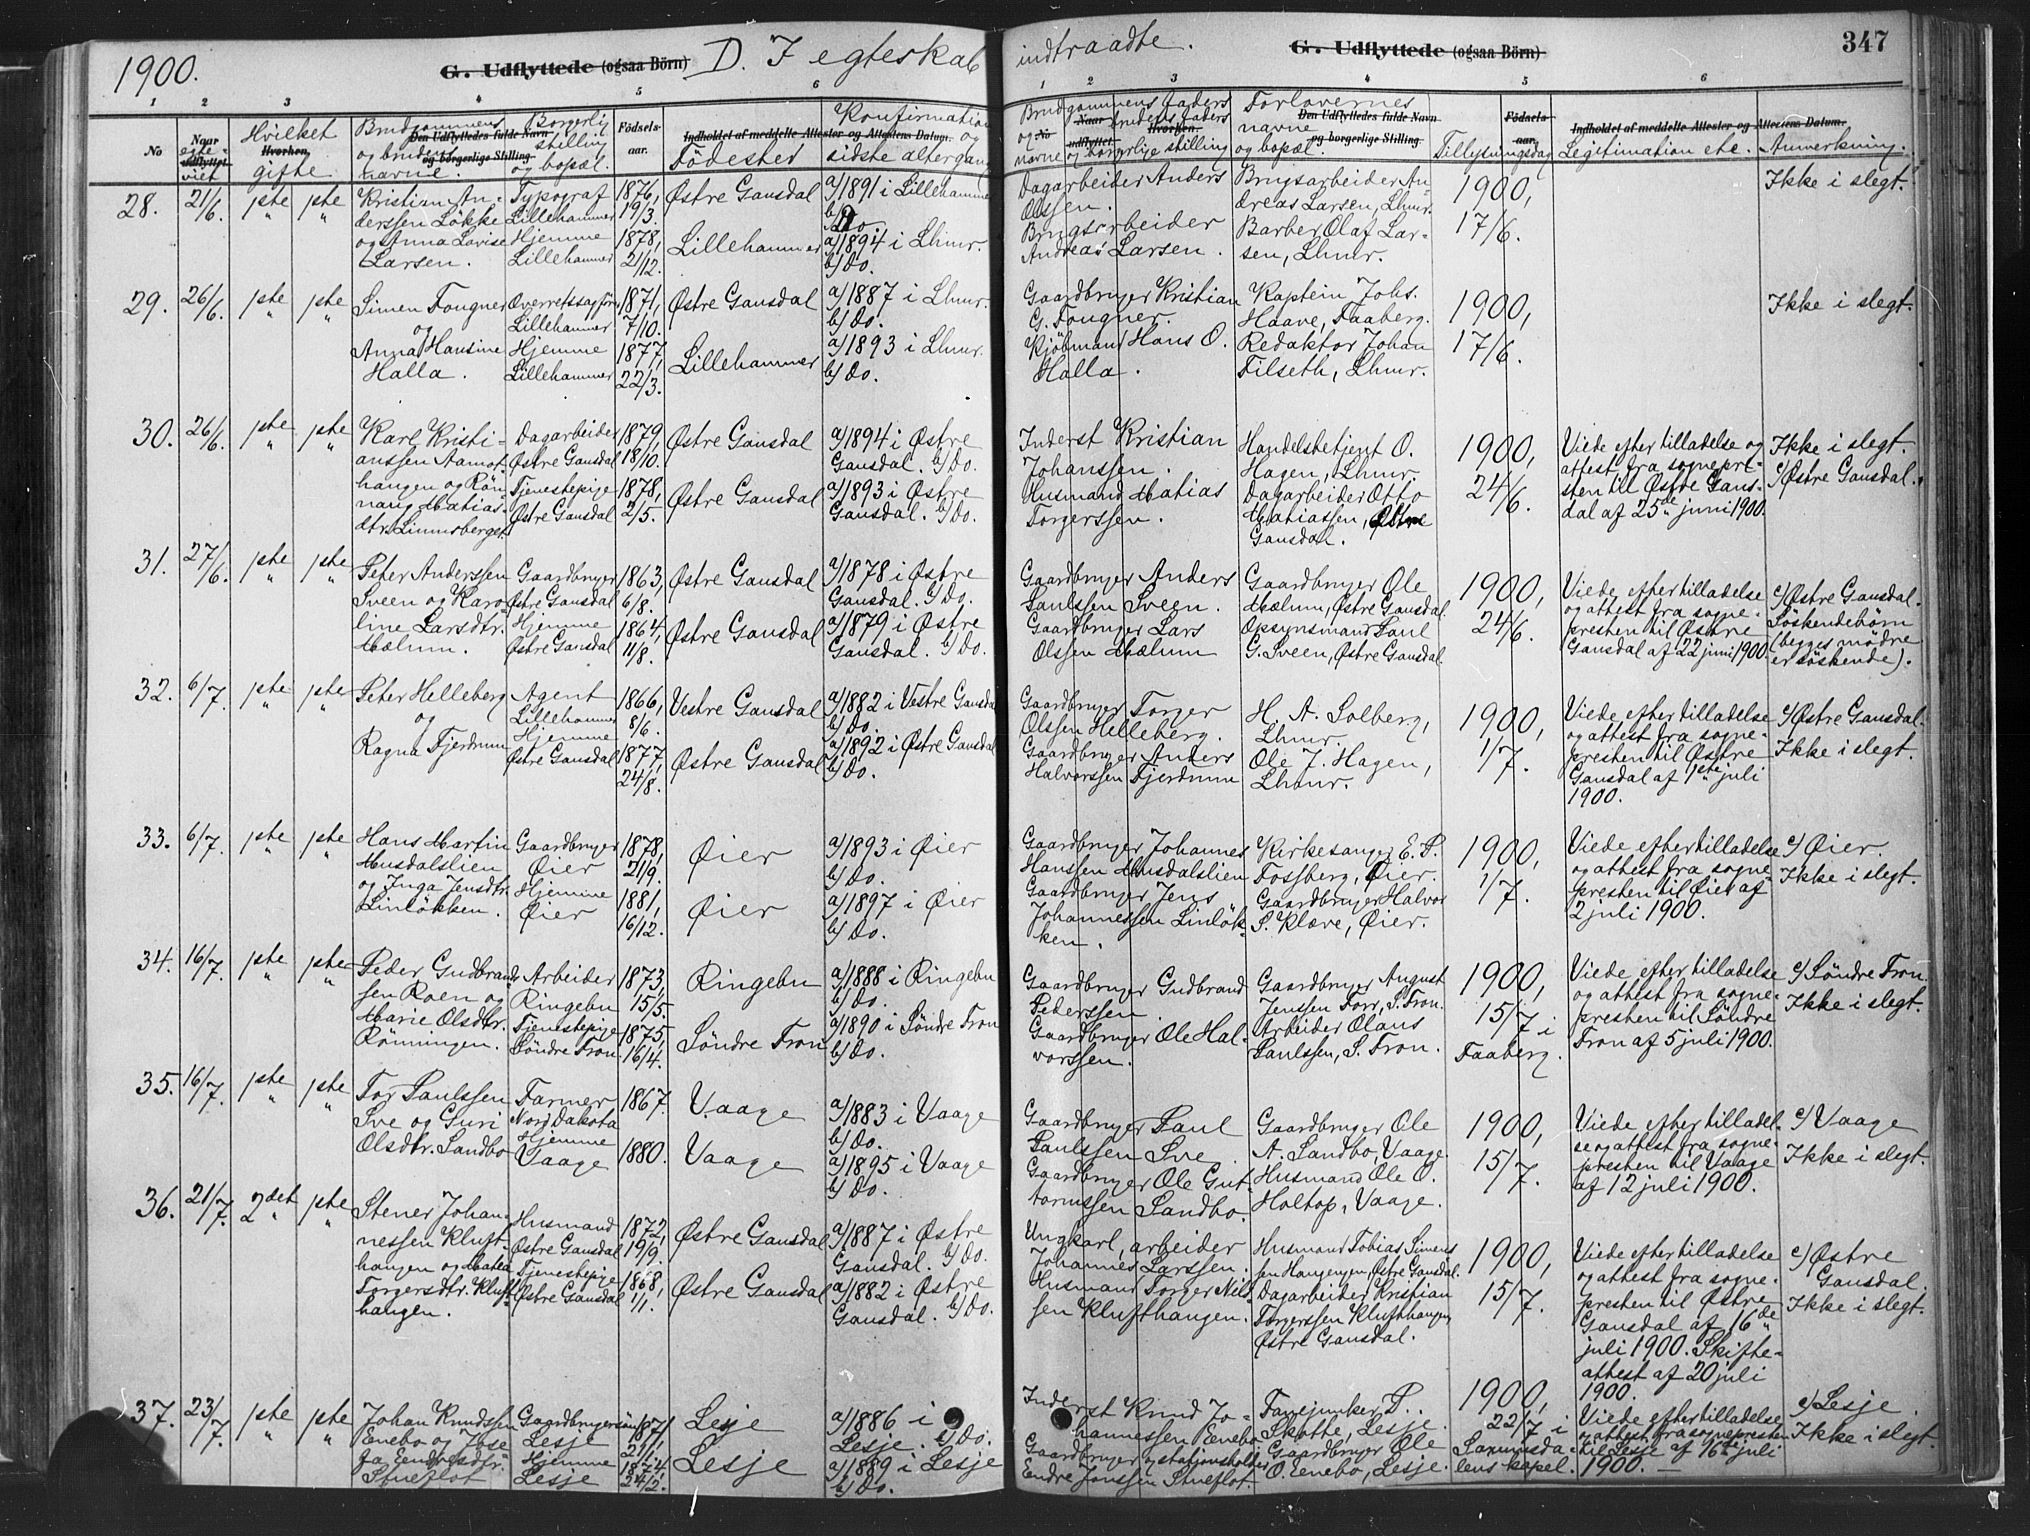 1900.
G. Udflyttede (ogsaa Börn)
D. I egteskab indtraadte.
G. Udflyttede (ogsaa Börn)
347
1 2 3 4 5 6
1 2 3 4 5 6
No
Naar udflyttet. egteviet
Hvorhen. Hvilket gifte
Den Udflyttedes fulde Navn og borgerlige Stilling. Brudgommens og brudens navne.
Borgerlig stilling og bopæl.
Födselsaar.
Indholdet af meddelte Attester og Attestens Datum.
Födested
Konfirmation og sidste altergang
No Naar udflyttet Hvorhen.
Brudgommens faders og brudens faders navne og borgerlige stilling
Den Udflyttedes fulde Navn og borgerlige Stilling.
Forlovernes navne og bopæl.
Födselsaar.
Tillysningsdag
Indholdet af meddelte Attester og Attestens Datum.
Legitimation etc.
Anmerkning.
28. 21/6. 1ste 1ste
Kristian An-
derssen Løkke
og Anna Lovise
Larsen.
Typograf
Lillehammer
Hjemme
Lillehammer
1876,
19/3.
1878,
21/12.
Østre Gausdal
Lillehammer
a/1891 i Lillehammer
b/ Do.
a/1894 i Lhmr.
b/ Do.
Dagarbeider Anders
Olssen.
Brugsarbeider
Andreas Larsen.
Brugsarbeider An-
dreas Larsen, Lhmr.
Barber Olaf Lar-
sen, Lhmr.
1900,
17/6.
Ikke i slegt.
29. 26/6. 1ste 1ste
Simen Fougner
og
Anna Hansine
Halla.
Overretssagförer
Lillehammer
Hjemme
Lillehammer
1871,
7/10.
1877,
22/3.
Østre Gausdal
Lillehammer
a/1887 i Lhmr.
b/ Do.
a/1893 i Lhmr.
b/ Do.
Gaardbruger Kristian
G. Fougner.
Kjöbmand Hans O.
Halla.
Kaptein Johs.
Haave, Faaberg.
Redaktör Johan
Filseth, Lhmr.
1900,
17/6.
Ikke i slegt.
30. 26/6. 1ste 1ste
Karl Kristi-
anssen Aamot-
hangen og Rön-
naug Matias-
dtr. Linnusberget
Dagarbeider
Østre Gausdal
Tjenestepige
Østre Gausdal
1879,
18/10.
1878,
2/5.
Østre Gausdal
Østre Gausdal
a/1894 i Østre
Gausdal. b/ Do.
a/1893 i Østre
Gausdal. b/ Do.
Inderst Kristian
Johanssen.
Husmand Matias
Torgerssen.
Handelsbetjent O.
Hagen, Lhmr.
Dagarbeider Otto
Matiassen, Østre
Gausdal.
1900,
24/6.
Viede efter tilladelse og
attest fra sognepre-
sten til Østre Gaus-
dal af 25de juni 1900.
Ikke i slegt.
c/ Østre Gausdal.
31. 27/6. 1ste 1ste
Peter Anderssen
Sveen og Karo-
line Larsdtr.
Mælum.
Gaardbruger
Østre Gausdal
Hjemme
Østre Gausdal
1863,
6/8.
1864,
11/8.
Østre Gausdal
Østre Gausdal
a/1878 i Østre
Gausdal. b/ Do.
a/1879 i Østre
Gausdal. b/ Do.
Gaardbruger Anders
Paulssen Sveen.
Gaardbruger Lars
Olssen Mælum
Gaardbruger Ole
Mælum, Østre Gausdal.
Opsynsmand Paul
G. Sveen, Østre Gausdal.
1900,
24/6.
Viede efter tilladelse
og attest fra sogne-
presten til Østre
Gausdal af 22 juni 1900.
c/ Østre Gausdal.
Söskendebörn
(begges mödre
er söskende).
32. 6/7. 1ste 1ste
Peter Helleberg
og
Ragna Fjerdrum
Agent
Lillehammer
Hjemme
Østre Gausdal
1866,
8/6.
1877,
24/8.
Vestre Gausdal
Østre Gausdal
a/1882 i Vestre Gausdal
b/ Do.
a/1892 i Østre Gausdal
b/ Do.
Gaardbruger Torger
Olssen Helleberg.
Gaardbruger Anders
Halvorssen Fjerdrum
H. A. Solberg,
Lhmr.
Ole J. Hagen,
Lhmr.
1900,
1/7.
Viede efter tilladelse
og attest fra sogne-
presten til Østre
Gausdal af 1ste juli
1900.
c/ Østre Gausdal.
Ikke i slegt.
33. 6/7. 1ste 1ste
Hans Martin
Musdalslien
og Inga Jensdtr.
Linlökken.
Gaardbruger
Øier
Hjemme
Øier
1878,
21/9.
1881,
16/12.
Øier
Øier
a/1893 i Øier
b/ Do.
a/1897 i Øier
b/ Do.
Gaardbruger Johannes
Hanssen Musdalslien
Gaardbruger Jens
Johannessen Linlök-
ken.
Kirkesanger E. P.
Fossberg, Øier.
Gaardbruger Halvor
S. Klæve, Øier.
1900,
1/7.
Viede efter tilladelse
og attest fra sogne-
presten til Øier af
2 juli 1900.
c/ Øier.
Ikke i slegt.
34. 16/7. 1ste 1ste
Peder Gudbrands-
sen Roen og
Marie Olsdtr.
Rönningen.
Arbeider
Ringebu
Tjenestepige
Söndre Fron
1873,
15/5.
1875,
16/4.
Ringebu
Söndre Fron
a/1888 i Ringebu
b/ Do.
a/1890 i Söndre Fron
b/ Do.
Gaardbruger Gudbrand
Pederssen
Gaardbruger Ole Hal-
vorssen.
Gaardbruger August
Jenssen Forr, S. Fron.
Arbeider Olaus
Paulssen, S. Fron.
1900,
15/7 i
Faaberg.
Viede efter tilladelse
og attest fra sogne-
presten til Söndre
Fron af 5 juli 1900.
c/ Söndre Fron
Ikke i slegt.
35. 16/7. 1ste 1ste
Tor Paulssen
Sve og Guri
Olsdtr. Sandbo
Farmer
Nord Dakota
Hjemme
Vaage
1867.
1880.
Vaage
Vaage
a/1883 i Vaage
b/ Do.
a/1895 i Vaage
b/ Do.
Gaardbruger Paul
Paulssen Sve
Gaardbruger Ole Gut-
tormssen Sandbo.
Gaardbruger Ole
A. Sandbo, Vaage.
Husmand Ole O.
Holtop, Vaage.
1900,
15/7.
Viede efter tilladel-
se og attest fra sogne-
presten til Vaage
af 12 juli 1900.
c/ Vaage
Ikke i slegt.
36. 21/7. 2det 1ste
Stener Johan-
nessen Kluft-
hangen og Matea
Torgersdtr. Kluft-
hangen.
Husmand
Østre Gausdal
Tjenestepige
Østre Gausdal
1872,
19/9.
1868,
1/1.
Østre Gausdal
Østre Gausdal
a/1887 i Østre
Gausdal. b/ Do.
a/1882 i Østre
Gausdal. b/ Do.
Ungkarl, arbeider
Johannes Larssen.
Husmand Torger Nils-
sen Klufthangen.
Husmand Tobias Simens-
sen Haugengen, Østre Gausdal.
Dagarbeider Kristian
Torgerssen Klufthangen,
Østre Gausdal.
1900,
15/7.
Viede efter tilladelse
og attest fra sogne-
presten til Østre
Gausdal af 16de
juli 1900. Skifte-
attest af 20 juli
1900.
c/ Østre
Gausdal
Ikke i slegt.
37. 23/7. 1ste 1ste
Johan Knudssen
Enebo og Jose-
fa Endresdtr.
Stueflot
Gaardbrugersön
Lesje
Hjemme
Lesje
1871,
21/1.
1874,
24/2.
Lesje
Lesje
a/1886 i
Lesje. b/ Do.
a/1889 i Lesje
b/ Do.
Inderst Knud Jo-
hannessen Enebo
Gaardbruger og stationsholder
Endre Jonssen Stueflot.
Fanejunker P.
Skotte, Lesje.
Gaardbruger Ole
O. Enebo, Lesje.
1900,
22/7 i
Saxumsda-
lens kapel.
Viede efter tilladelse
og attest fra sognepresten
til Lesje af 16de juli
1900. —
c/ Lesje.
Ikke i slegt.